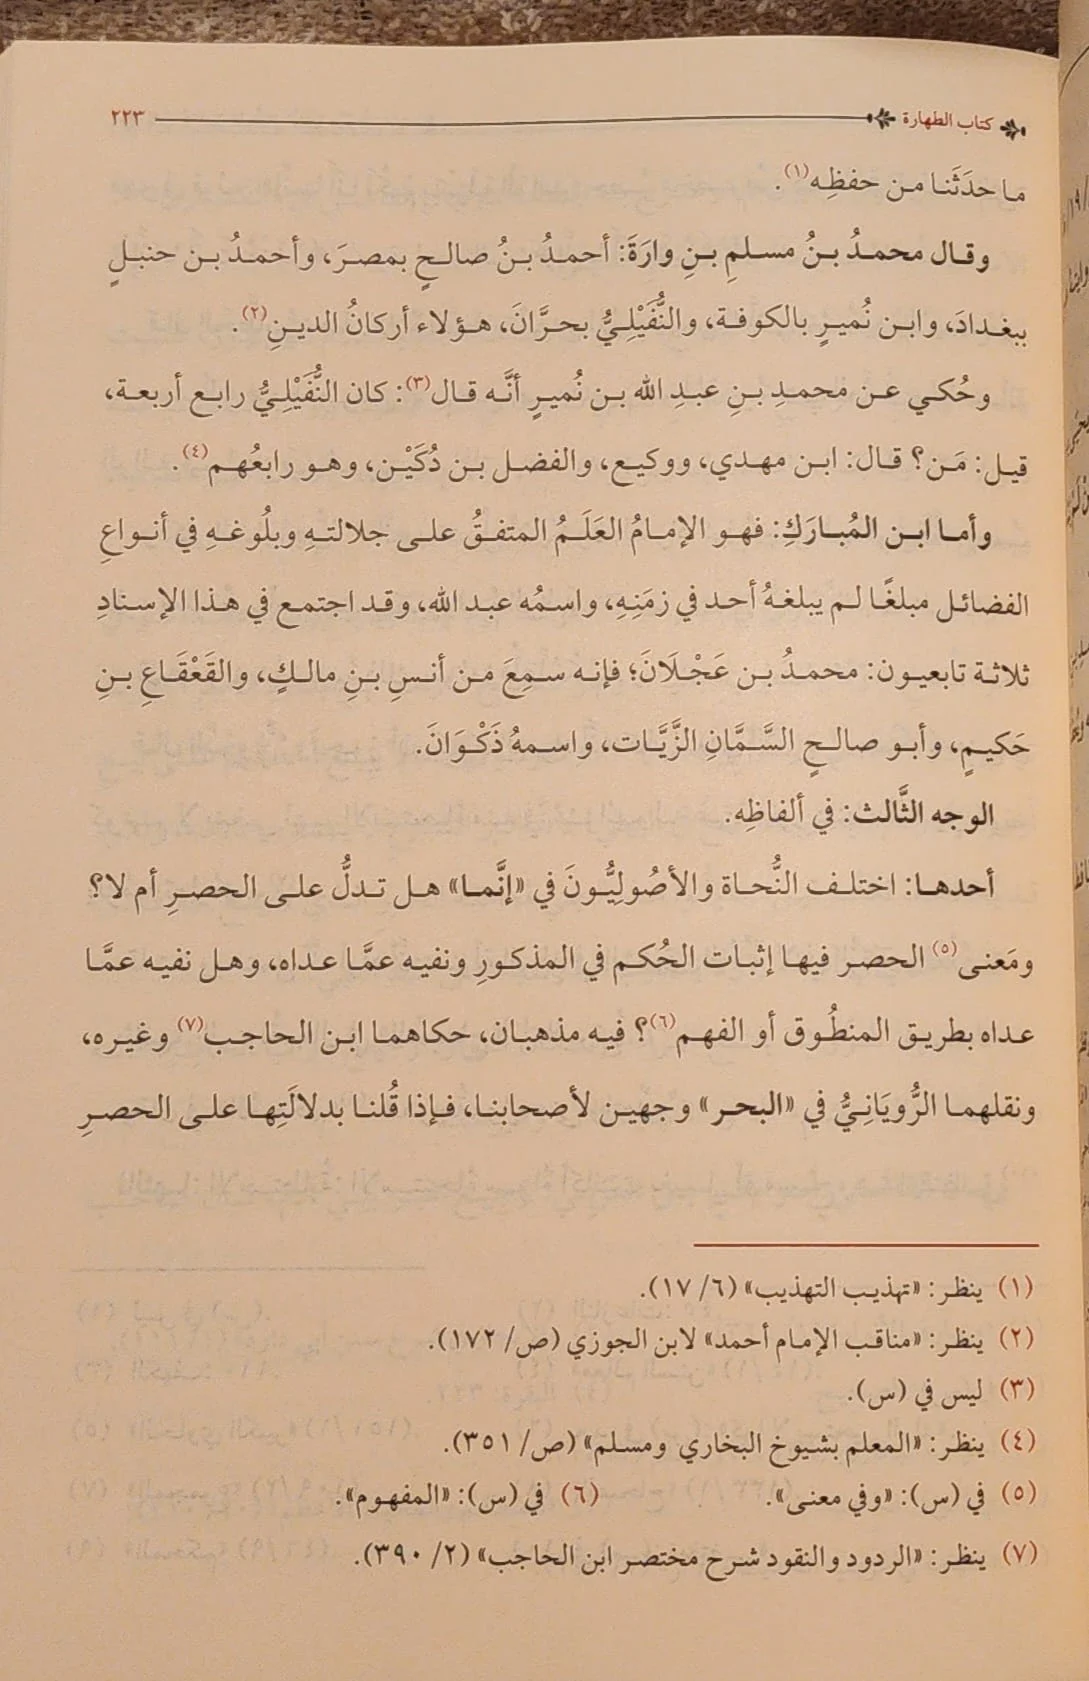 كتاب الطهارة ٢٢٣
ما حدَثَنا من حفظِه(١).
وقال محمدُ بنُ مسلمِ بنِ وارَةَ: أحمدُ بنُ صالحٍ بمصرَ، وأحمدُ بن حنبلٍ
ببغدادَ، وابن نُميرٍ بالكوفة، والنُّفَيْلِيُّ بحرَّانَ، هؤلاء أركانُ الدينِ(٢).
وحُكي عن محمدِ بنِ عبدِ الله بن نُميرٍ أنَّه قال(٣): كان النُّفَيْلِيُّ رابع أربعة،
قيل: مَن؟ قال: ابن مهدي، ووكيع، والفضل بن دُكَيْن، وهو رابعُهم(٤).
وأما ابن المُبارَكِ: فهو الإمامُ العَلَمُ المتفقُ على جلالتهِ وبلُوغهِ في أنواعِ
الفضائل مبلغًا لم يبلغهُ أحد في زمَنِهِ، واسمُه عبد الله، وقد اجتمع في هذا الإسنادِ
ثلاثة تابعيون: محمدُ بن عَجْلَانَ؛ فإنه سمِعَ من أنسِ بنِ مالكٍ، والقَعْقَاعِ بنِ
حَكيمٍ، وأبو صالحٍ السَّمَّانِ الزَّيَّات، واسمهُ ذَكْوَانَ.
الوجه الثَّالث: في ألفاظِه.
أحدها: اختلف النُّحاة والأصُولِيُّونَ في «إنَّما» هل تدلُّ على الحصرِ أم لا؟
ومَعنى(٥) الحصر فيها إثبات الحُكم في المذكورِ ونفيه عمَّا عداه، وهل نفيه عمَّا
عداه بطريق المنطُوق أو الفهم(٦)؟ فيه مذهبان، حكاهما ابن الحاجب(٧) وغيره،
ونقلهما الرُّويَانِيُّ في «البحر» وجهين لأصحابنا، فإذا قُلنا بدلالَتِها على الحصرِ
(١) ينظر: «تهذيب التهذيب» (٦/ ١٧).
(٢) ينظر: «مناقب الإمام أحمد» لابن الجوزي (ص/ ١٧٢).
(٣) ليس في (س).
(٤) ينظر: «المعلم بشيوخ البخاري ومسلم» (ص/ ٣٥١).
(٥) في (س): «وفي معنى». (٦) في (س): «المفهوم».
(٧) ينظر: «الردود والنقود شرح مختصر ابن الحاجب» (٢/ ٣٩٠).